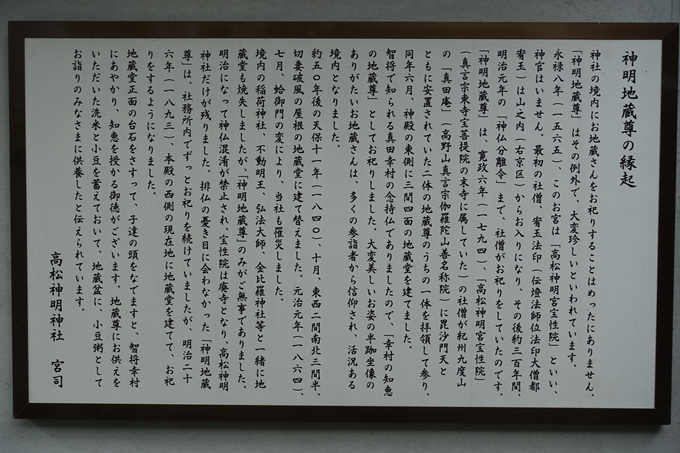 神明地蔵尊の縁起
神社の境内にお地蔵さんをお祀りすることはめったにありません。
「神明地蔵尊」はその例外で、大変珍しいといわれています。
永禄八年(一五六五)、このお宮は「高松神明宮宝性院」といい、
神官はいません。最初の社僧、宥玉法印(伝燈法師位法印大僧都
宥玉)は山之内(右京区)からお入りになり、その後約三百年間、
明治元年の「神仏分離令」まで、社僧がお祀りをしていたのです。
「神明地蔵尊」は、寛政六年(一七九四)、「高松神明宮宝性院」
(真言宗東寺宝菩提院の末寺に属していた)の社僧が紀州九度山
の「真田庵」(高野山真言宗伽羅陀山善名称院)に毘沙門天と
ともに安置されていた二体の地蔵尊のうちの一体を拝領して参り、
同年六月、神殿の東側に三間四面の地蔵堂を建てました。
智将で知られる真田幸村の念持仏でありましたので、「幸村の知恵
の地蔵尊」としてお祀りしました。大変美しいお姿の半跏坐像の
ありがたいお地蔵さんは、多くの参詣者から信仰され、活況ある
境内となりました。
約五〇年後の天保十一年(一八四〇)、十月、東西二間南北三間半、
切妻破風の屋根の地蔵堂に建て替えます。元治元年(一八六四)、
七月、蛤御門の変により、当社も罹災しました。
境内の稲荷神社、不動明王、弘法大師、金比羅神社等と一緒に地
蔵堂も焼失しましたが、「神明地蔵尊」のみがご無事でありました。
明治になって神仏混淆が禁止され、宝性院は廃寺となり、高松神明
神社だけが残りました。排仏の憂き目に会わなかった「神明地蔵
尊」は、社務所内でずっとお祀りを続けていましたが、明治二十
六年(一八九三)、本殿の西側の現在地に地蔵堂を建てて、お祀
りをするようになりました。
地蔵堂正面の台石をさすって、子達の頭をなでますと、智将幸村
にあやかり、知恵を授かる御徳がございます。地蔵尊にお供えを
いただいた洗米と小豆を蓄えておいて、地蔵盆に、小豆粥として
お詣りのみなさまに供養したと伝えられています。
高松神明神社 宮司